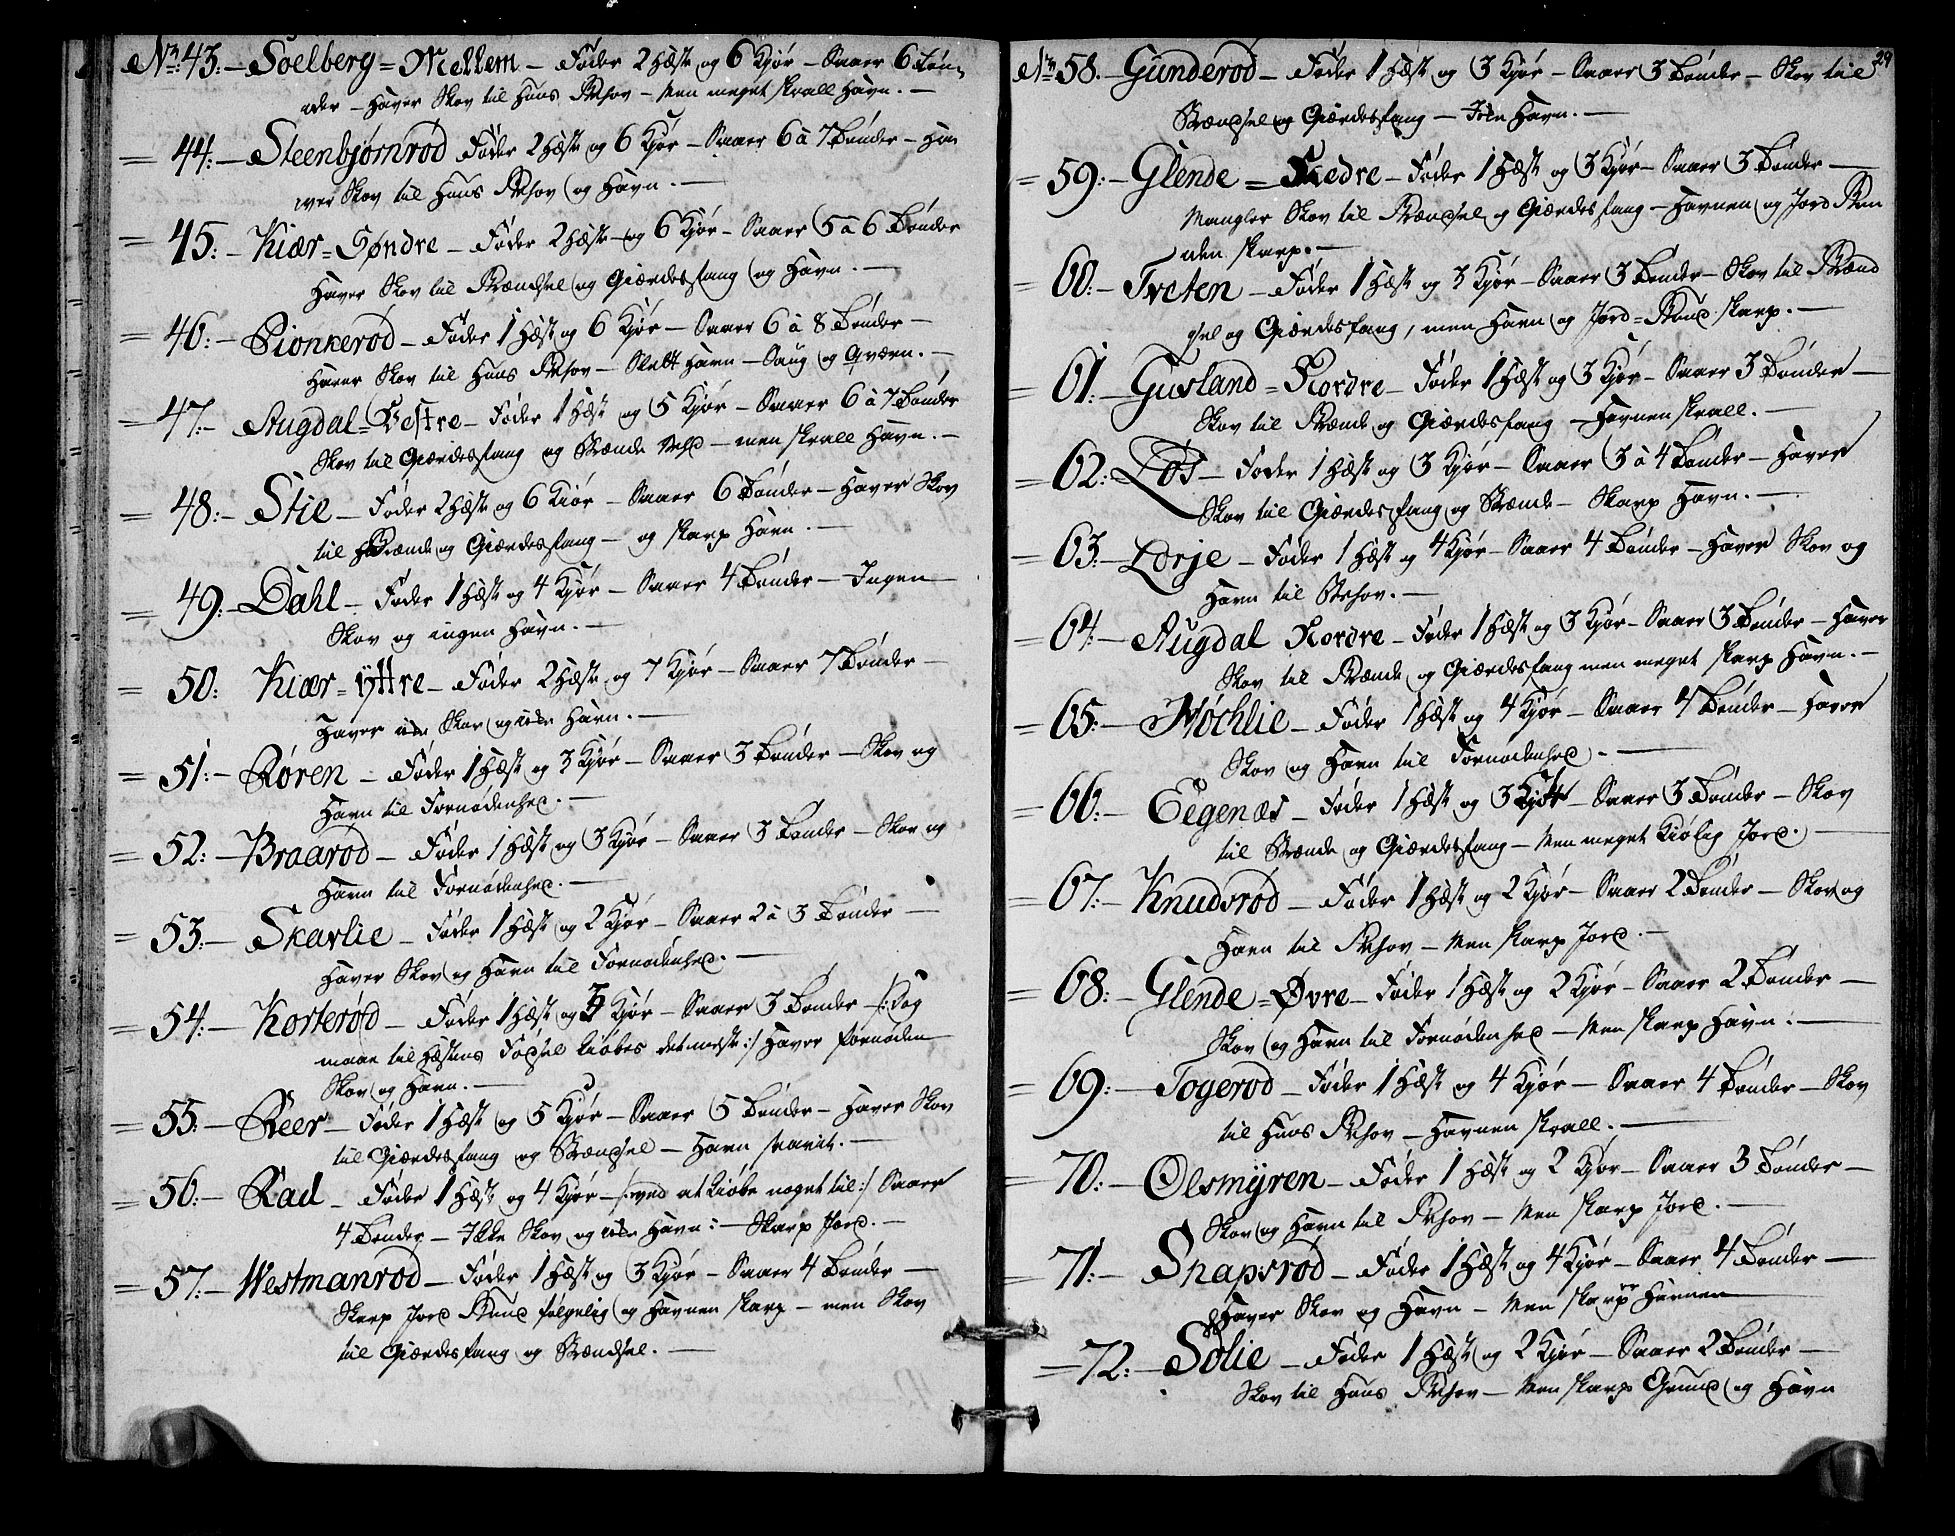 No 43:- Soelberg=Mellem - Føder 2 Hæste og 6 Kjør - Saaer 6 Tøn-
der - Haver Skov til Huus Behov - Men meget skrall Havn. -
= 44:- Steenbjørnrød Føder 2 Hæste og 6 Kjør - Saaer 6 à 7 Tønder - Ha
wer Skov til Huus Behov og Havn. -
= 45:- Kiær=Søndre - Føder 2 Hæste og 6 Kjør - Saaer 5 à 6 Tønder
Haver Skov til Brændsel og Giærdesfang og Havn. -
= 46:- Pionkerød - Føder 1 Hæst og 6 Kjør - Saaer 6 à 8 Tønder -
Haver Skov til Huus Behov - Slett Havn - Saug og Qværn. -
= 47:- Augdal=Vestre - Føder 1 Hæst og 5 Kjør - Saaer 6 à 7 Tønder
Skov til Giærdesfang og Brænde Ved - men skrall Havn. -
= 48:- Stie - Føder 2 Hæste og 6 Kiør - Saaer 6 Tønder - Haver Skov
til Brænde og Giærdesfang - og skarp Havn. -
= 49:- Dahl - Føder 1 Hæst og 4 Kjør - Saaer 4 Tønder - Ingen
Skov og ingen Havn. -
= 50: Kiær=Ÿttre - Føder 2 Hæste og 7 Kjør - Saaer 7 Tønder -
Haver Skov og Havn. -
= 51:- Røren - Føder 1 Hæst og 3 Kjør - Saaer 3 Tønder - Skov og
Havn til Fornødenhed. -
= 52:- Braarød - Føder 1 Hæst og 3 Kjør - Saaer 3 Tønder - Skov og
Havn til Fornødenhed. -
= 53:- Skavlie - Føder 1 Hæst og 2 Kjør - Saaer 2 à 3 Tønder -
Haver Skov og Havn til Fornødenhed. -
= 54:- Korterød - Føder 1 Hæst og 3 Kjør - Saaer 3 Tønder - /:Dog
maae til Hæstens Fødsel kiøbes det meeste:/ Haver fornøden
Skov og Havn. -
= 55:- Reer - Føder 1 Hæst og 5 Kjør - Saaer 5 Tønder - Haver Skov
til Giærdesfang og Brændsel - Havn
= 56:- Rad - Føder 1 Hæst og 4 Kjør - /:ved at kiøbe noget til:/ Saaer
4 Tønder - Ikke Skov og Havn: - Skarp Jord. -
= 57:- Westmanrød - Føder 1 Hæst og 3 Kjør - Saaer 4 Tønder -
Skarp Jord Bund følgelig og Havnen skarp - men Skov
til Giærdesfang og Brændsel. -
29
No 58.- Gunderød - Føder 1 Hæst og 3 Kjør - Saaer 3 Tønder - Skov til
Brændsel og Giærdesfang - Havn. -
= 59:- Glende=Nedre - Føder 1 Hæst og 3 Kjør - Saaer 3 Tønder -
Mangler Skov til Brændsel og Giærdesfang - Havnen og Jord Bun
den skarp. -
= 60:- Tveten - Føder 1 Hæst og 3 Kjør - Saaer 3 Tønder - Skov til Brænd
sel og Giærdesfang, men Havn og Jord=Bund skarp. -
= 61:- Gusland=Nordre - Føder 1 Hæst og 3 Kjør - Saaer 3 Tønder -
Skov til Brænde og Giærdesfang - Havnen skrall. -
= 62: Løs - Føder 1 Hæst og 3 Kjør - Saaer 3 à 4 Tønder - Haver
Skov til Giærdesfang og Brænde - Skarp Havn. -
= 63:- Lørje - Føder 1 Hæst og 4 Kjør - Saaer 4 Tønder - Haver Skov og
Havn til Behov. -
= 64:- Augdal Nordre - Føder 1 Hæst og 3 Kjør - Saaer 3 Tønder - Haver
Skov til Brænde og Giærdesfang men meget skarp Havn. -
= 65:- Møchlie - Føder 1 Hæst og 4 Kjør - Saaer 4 Tønder - Haver
Skov og Havn til Fornødenhed. -
= 66:- Eegenæs - Føder 1 Hæst og 3 Kjør - Saaer 3 Tønder - Skov
til Brænde og Giærdesfang - Men meget Kiølig Jord. -
= 67:- Knudsrød - Føder 1 Hæst og 2 Kjør - Saaer 2 Tønder - Skov og
Havn til Behov - Men skarp Jord. -
= 68:- Glende=Øvre - Føder 1 Hæst og 2 Kjør - Saaer 2 Tønder -
Skov og Havn til Fornødenhed - Men skarp Havn. -
= 69:- Togerød - Føder 1 Hæst og 4 Kjør - Saaer 4 Tønder - Skov
til Huus Behov - Havnen skrall. -
= 70:- Olsmÿren - Føder 1 Hæst og 2 Kjør - Saaer 3 Tønder -
Skov og Havn til Behov - Men skarp Jord. -
= 71:- Snapsrød - Føder 1 Hæst og 4 Kjør - Saaer 4 Tønder -
Haver Skov og Havn - Men skarp er Havnen
= 72:- Solie - Føder 1 Hæst og 2 Kjør - Saaer 2 Tønder -
Skov til Huus Behov - Men skarp Grund og Havn